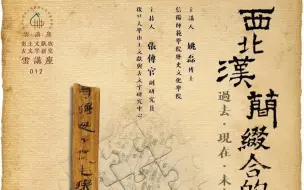 西北漢簡綴合的
過去·現在·未
主講人 姚磊 博士
信陽師範學院歷史文化學院
主持人 張傳官 副研究員
復旦大學出土文獻與古文字研究中心
雲講座
017